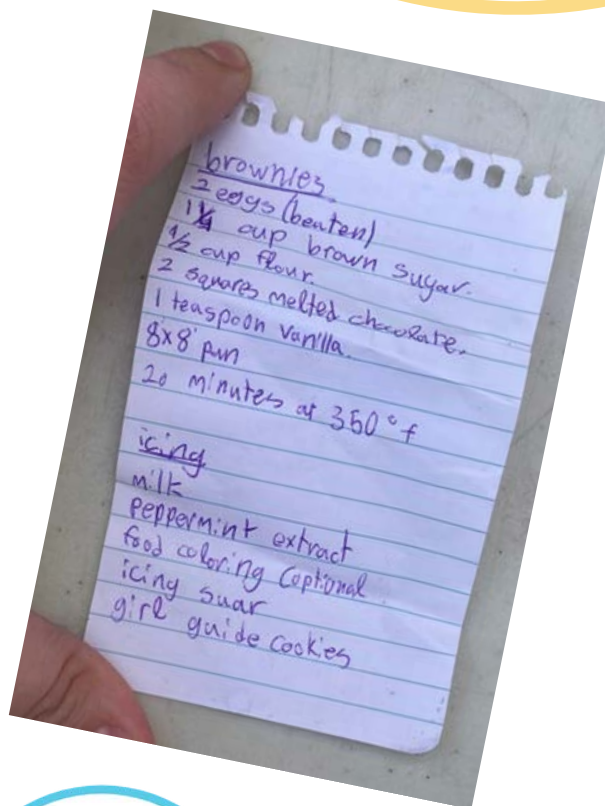 brownies
2 eggs (beaten)
1 1/4 cup brown sugar.
1/2 cup flour.
2 squares melted chocolate.
1 teaspoon vanilla.
8x8' pan
20 minutes at 350°f
icing
milk
peppermint extract
food coloring (optional
icing suar
girl guide cookies